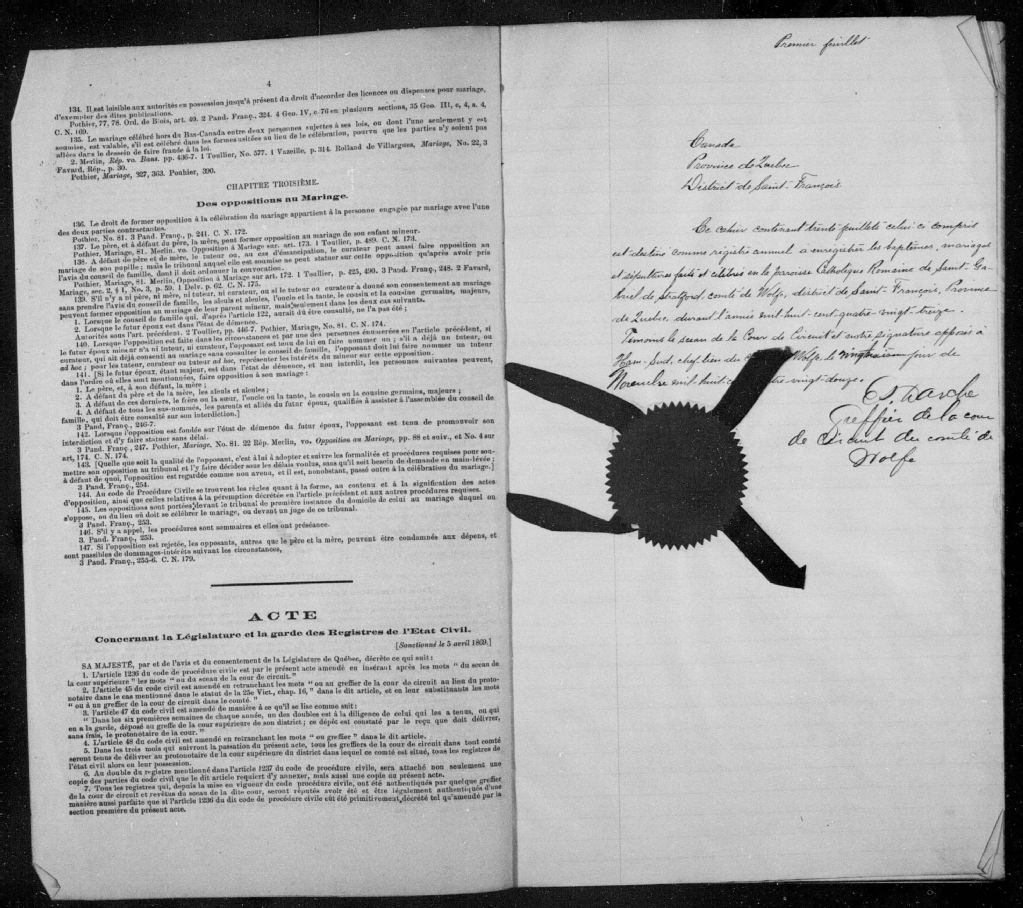 4
134. Il est loisible aux autorités en possession jusqu'à présent du droit d'accorder des licences ou dispenses pour mariage,
d'exempter des dites publications.
Pothier, 77, 78. Ord. de Blois, art. 40. 2 Pand. Franç., 324. 4 Geo. IV, c. 76 en plusieurs sections, 35 Geo. III, c, 4, s. 4,
C. N. 169.
135. Le mariage célébré hors du Bas-Canada entre deux personnes sujettes à ses lois, ou dont l'une seulement y est
soumise, est valable, s'il est célébré dans les formes usitées au lieu de la célébration, pourvu que les parties n'y soient pas
allées dans le dessein de faire fraude à la loi.
2. Merlin, Rép. vo. Bans. pp. 436-7. 1 Toullier, No. 577. 1 Vazeille, p. 314. Rolland de Villargues, Mariage, No. 22, 3
Favard, Rép., p. 30.
Pothier, Mariage, 327, 363. Pouhier, 390.
CHAPITRE TROISIÈME.
Des oppositions au Mariage.
136. Le droit de former opposition à la célébration du mariage appartient à la personne engagée par mariage avec l'une
des deux parties contractantes.
Pothier, No. 81. 3 Pand. Franç., p. 241. C. N. 172.
137. Le père, et à défaut du père, la mère, peut former opposition au mariage de son enfant mineur.
Pothier, Mariage, 81. Merlin. vo. Opposition à Mariage sur. art. 173. 1 Toullier, p. 489. C. N. 173.
138. A défaut de père et de mère, le tuteur ou, au cas d'émancipation, le curateur peut aussi faire opposition au
mariage de son pupille; mais le tribunal auquel elle est soumise ne peut statuer sur cette opposition qu'après avoir pris
l'avis du conseil de famille, dont il doit ordonner la convocation.
Pothier, Mariage, 81. Merlin, Opposition à Mariage sur art. 172. 1 Toullier, p. 425, 490. 3 Pand. Franç., 248. 2 Favard,
Mariage, sec. 2, § 1, No. 3, p. 59. 1 Delv. p. 62. C. N. 175.
139. S'il n'y a ni père, ni mère, ni tuteur, ni curateur, ou si le tuteur ou curateur a donné son consentement au mariage
sans prendre l'avis du conseil de famille, les aïeuls et aïeules, l'oncle et la tante, le cousin et la cousine germains, majeurs,
peuvent former opposition au mariage de leur parent mineur, mais seulement dans les deux cas suivants.
1. Lorsque le conseil de famille qui, d'après l'article 122, aurait dû être consulté, ne l'a pas été;
2. Lorsque le futur époux est dans l'état de démence.
Autorités sous l'art. précédent. 2 Toullier, pp. 446-7. Pothier, Mariage, No. 81. C. N. 174.
140. Lorsque l'opposition est faite dans les circonstances et par une des personnes énumérées en l'article précédent, si
le futur époux mineur n'a ni tuteur, ni curateur, l'opposant est tenu de lui en faire nommer un; s'il a déjà un tuteur, ou
curateur, qui ait déjà consenti au mariage sans consulter le conseil de famille, l'opposant doit lui faire nommer un tuteur
ad hoc; pour les tuteur, curateur ou tuteur ad hoc, représenter les intérêts du mineur sur cette opposition.
141. [Si le futur époux, étant majeur, est dans l'état de démence, et non interdit, les personnes suivantes peuvent,
dans l'ordre où elles sont mentionnées, faire opposition à son mariage:
1. Le père, et, à son défaut, la mère;
2. A défaut du père et de la mère, les aïeuls et aïeules;
3. A défaut de ces derniers, le frère ou la sœur, l'oncle ou la tante, le cousin ou la cousine germains, majeurs;
4. A défaut de tous les sus-nommés, les parents et alliés du futur époux, qualifiés à assister à l'assemblée du conseil de
famille, qui doit être consulté sur son interdiction.]
3 Pand. Franç., 246-7.
142. Lorsque l'opposition est fondée sur l'état de démence du futur époux, l'opposant est tenu de promouvoir son
interdiction et d'y faire statuer sans délai.
3 Pand. Franç., 247. Pothier, Mariage, No. 81. 22 Rép. Merlin, vo. Opposition au Mariage, pp. 88 et suiv., et No. 4 sur
art, 174. C. N. 174.
143. [Quelle que soit la qualité de l'opposant, c'est à lui à adopter et suivre les formalités et procédures requises pour soumettre son opposition au tribunal et l'y faire décider sous les délais voulus, sans qu'il soit besoin de demande en main-levée;
à défaut de quoi, l'opposition est regardée comme non avenue, et il est, nonobstant, passé outre à la célébration du mariage.]
3 Pand. Franç., 254.
144. Au code de Procédure Civile se trouvent les règles quant à la forme, au contenu et à la signification des actes
d'opposition, ainsi que celles relatives à la péremption décrétée en l'article précédent et aux autres procédures requises.
145. Les oppositions sont portées devant le tribunal de première instance du domicile de celui au mariage duquel on
s'oppose, ou du lieu où doit se célébrer le mariage, ou devant un juge de ce tribunal.
3 Pand. Franç., 253.
146. S'il y a appel, les procédures sont sommaires et elles ont préséance.
3. Pand. Franç., 253.
147. Si l'opposition est rejetée, les opposants, autres que le père et la mère, peuvent être condamnés aux dépens, et
sont passibles de dommages-intérêts suivant les circonstances,
3 Pand. Franç., 255-6. C. N. 179.
ACTE
Concernant la Législature et la garde des Registres de l'Etat Civil.
[Sanctionné le 5 avril 1869.]
SA MAJESTÉ, par et de l'avis et du consentement de la Législature de Québec, décrète ce qui suit:
1. L'article 1236 du code de procédure civile est par le présent acte amendé en insérant après les mots "du sceau de
la cour supérieure" les mots "ou du sceau de la cour de circuit."
2. L'article 45 du code civil est amendé en retranchant les mots "ou au greffier de la cour de circuit au lieu du protonotaire dans le cas mentionné dans le statut de la 25e Vict., chap. 16," dans le dit article, et en leur substituant les mots
"ou à un greffier de la cour de circuit dans le comté."
3. l'article 47 du code civil est amendé de manière à ce qu'il se lise comme suit:
"Dans les six premières semaines de chaque année, un des doubles est à la diligence de celui qui les a tenus, ou qui
en a la garde, déposé au greffe de la cour supérieure de son district; ce dépôt est constaté par le reçu que doit délivrer,
sans frais, le protonotaire de la cour."
4. L'article 48 du code civil est amendé en retranchant les mots "ou greffier" dans le dit article.
5. Dans les trois mois qui suivront la passation du présent acte, tous les greffiers de la cour de circuit dans tout comté
seront tenus de délivrer au protonotaire de la cour supérieure du district dans lequel ce comté est situé, tous les registres de
l'état civil alors en leur possession.
6. Au double du registre mentionné dans l'article 1237 du code de procédure civile, sera attaché non seulement une
copie des parties du code civil que le dit article requiert d'y annexer, mais aussi une copie du présent acte.
7. Tous les registres qui, depuis la mise en vigueur du code procédure civile, ont été authentiqués par quelque greffier
de la cour de circuit et revêtus du sceau de la dite cour, seront réputés avoir été et être légalement authentiqués d'une
manière aussi parfaite que si l'article 1236 du dit code de procédure civile eût été primitivement décrété tel qu'amendé par la
section première du présent acte.
Premier feuillet
Canada
Province de Quebec
District de Saint-François
Ce cahier contenant trente feuillets celui ci compris
est destiné comme régistre annuel à enregistrer les baptêmes, mariages
et sépultures faits et célébrés en la paroisse Catholique Romaine de Saint-Gabriel de Stratford, comté de Wolfe, district de Saint-François, Province
de Quebec, durant l'année mil huit-cent-quatre-vingt-treize.
Témoins le sceau de la Cour de Circuit et notre signature apposés à
Ham-Sud, chef lieu du Wolfe, le jour de
Novembre mil huit vingt-douze.
Darche
Greffier de la cour
de Circuit du comté de
Wolfe